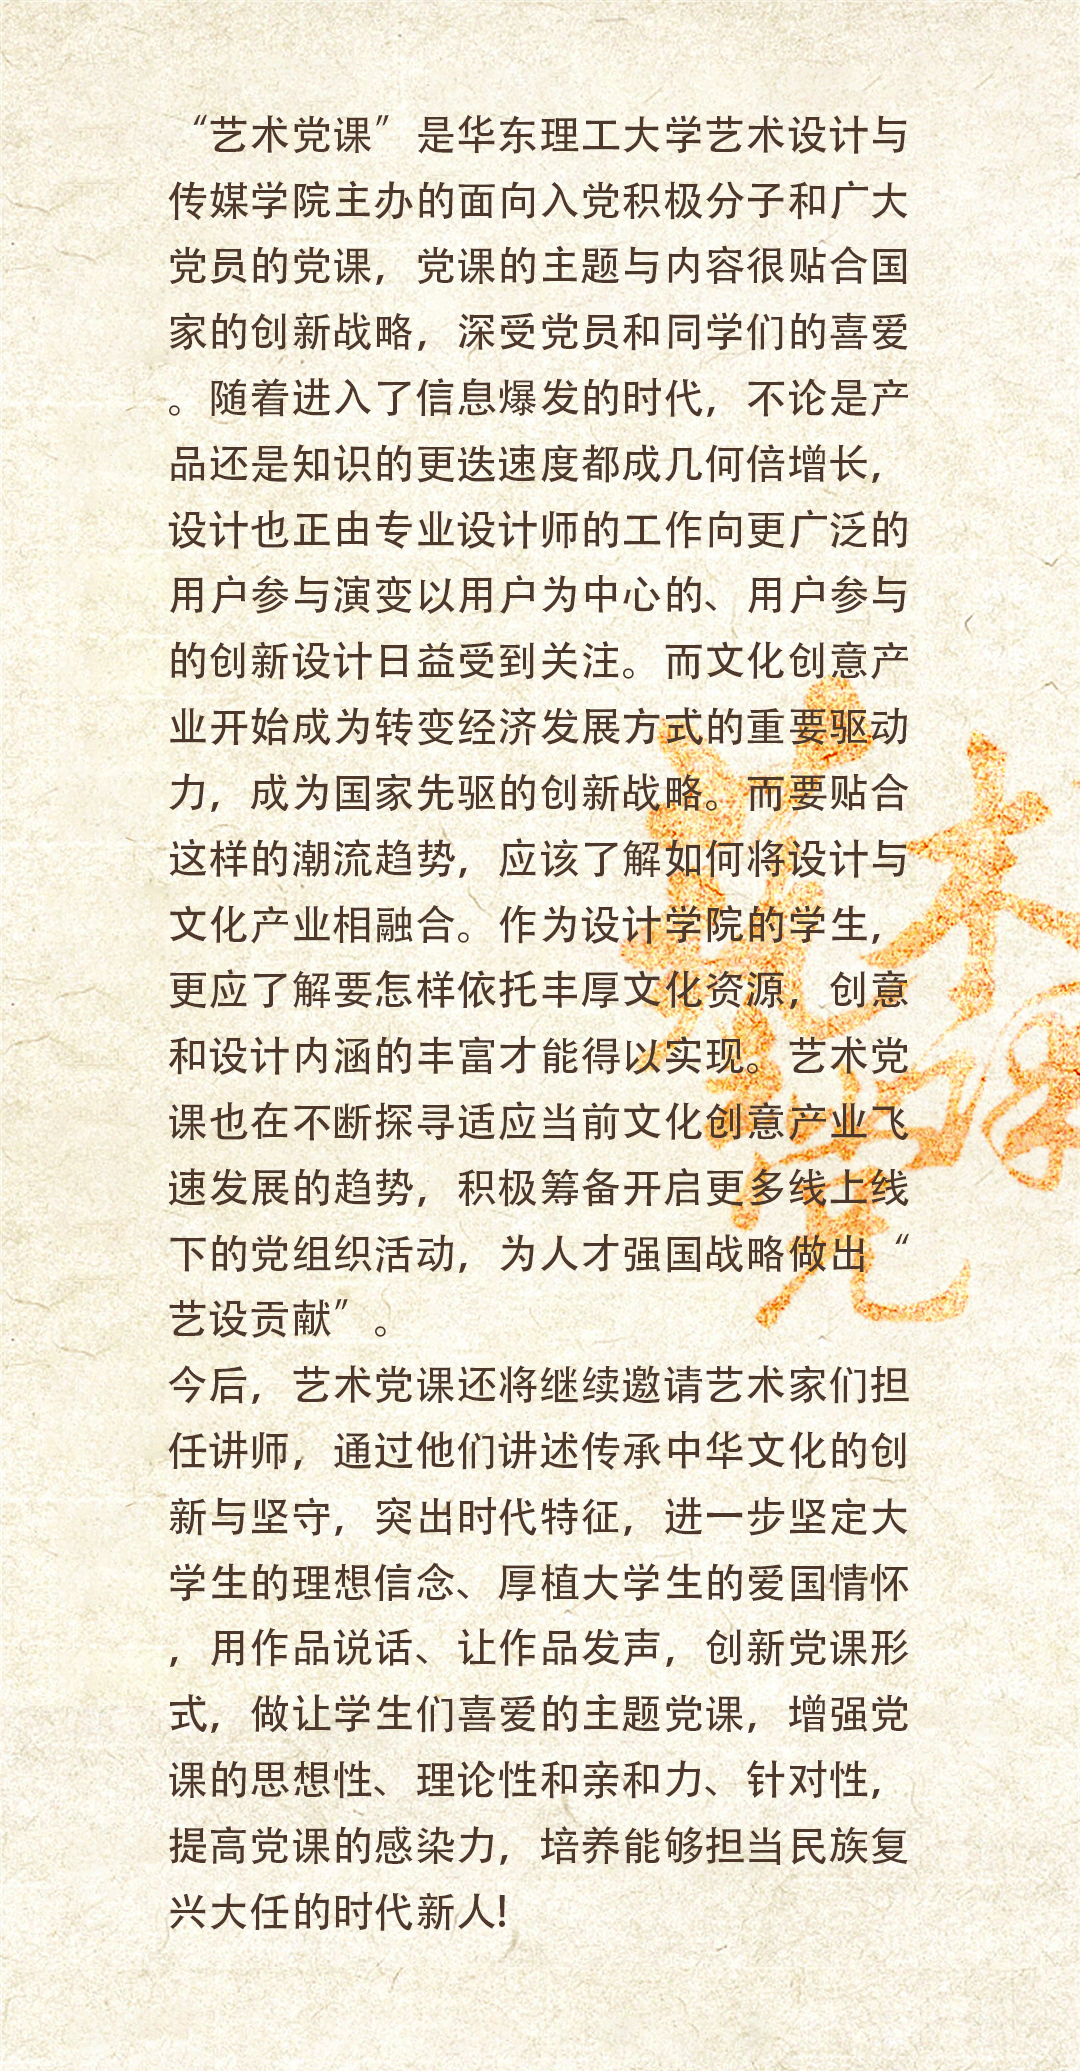 “艺术党课”是华东理工大学艺术设计与
传媒学院主办的面向入党积极分子和广大
党员的党课，党课的主题与内容很贴合国
家的创新战略，深受党员和同学们的喜爱
。随着进入了信息爆发的时代，不论是产
品还是知识的更迭速度都成几何倍增长，
设计也正由专业设计师的工作向更广泛的
用户参与演变以用户为中心的、用户参与
的创新设计日益受到关注。而文化创意产
业开始成为转变经济发展方式的重要驱动
力，成为国家先驱的创新战略。而要贴合
这样的潮流趋势，应该了解如何将设计与
文化产业相融合。作为设计学院的学生，
更应了解要怎样依托丰厚文化资源，创意
和设计内涵的丰富才能得以实现。艺术党
课也在不断探寻适应当前文化创意产业飞
速发展的趋势，积极筹备开启更多线上线
下的党组织活动，为人才强国战略做出“
艺设贡献”。
今后，艺术党课还将继续邀请艺术家们担
任讲师，通过他们讲述传承中华文化的创
新与坚守，突出时代特征，进一步坚定大
学生的理想信念、厚植大学生的爱国情怀
，用作品说话、让作品发声，创新党课形
式，做让学生们喜爱的主题党课，增强党
课的思想性、理论性和亲和力、针对性，
提高党课的感染力，培养能够担当民族复
兴大任的时代新人！
艺术
党课